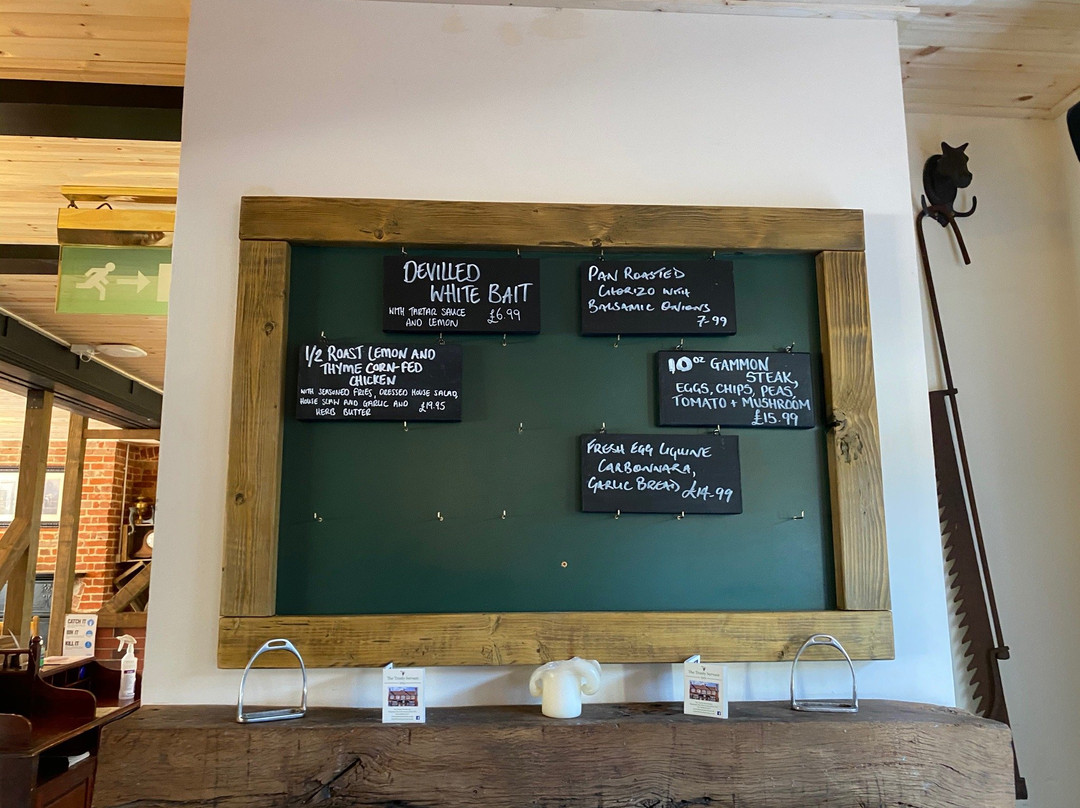 DEVILLED
WHITE BAIT
WITH TARTAR SAUCE
AND LEMON £6.99
PAN ROASTED
CHORIZO WITH
BALSAMIC ONIONS
7-99
1/2 ROAST LEMON AND
THYME CORN-FED
CHICKEN
WITH SEASONED FRIES, DRESSED HOUSE SALAD,
HOUSE SLAW AND GARLIC AND
HERB BUTTER £19.95
10OZ GAMMON
STEAK,
EGGS, CHIPS, PEAS,
TOMATO + MUSHROOM
£15.99
FRESH EGG LIQUINE
CARBONNARA,
GARLIC BREAD £14-99
CATCH IT
BIN IT
KILL IT